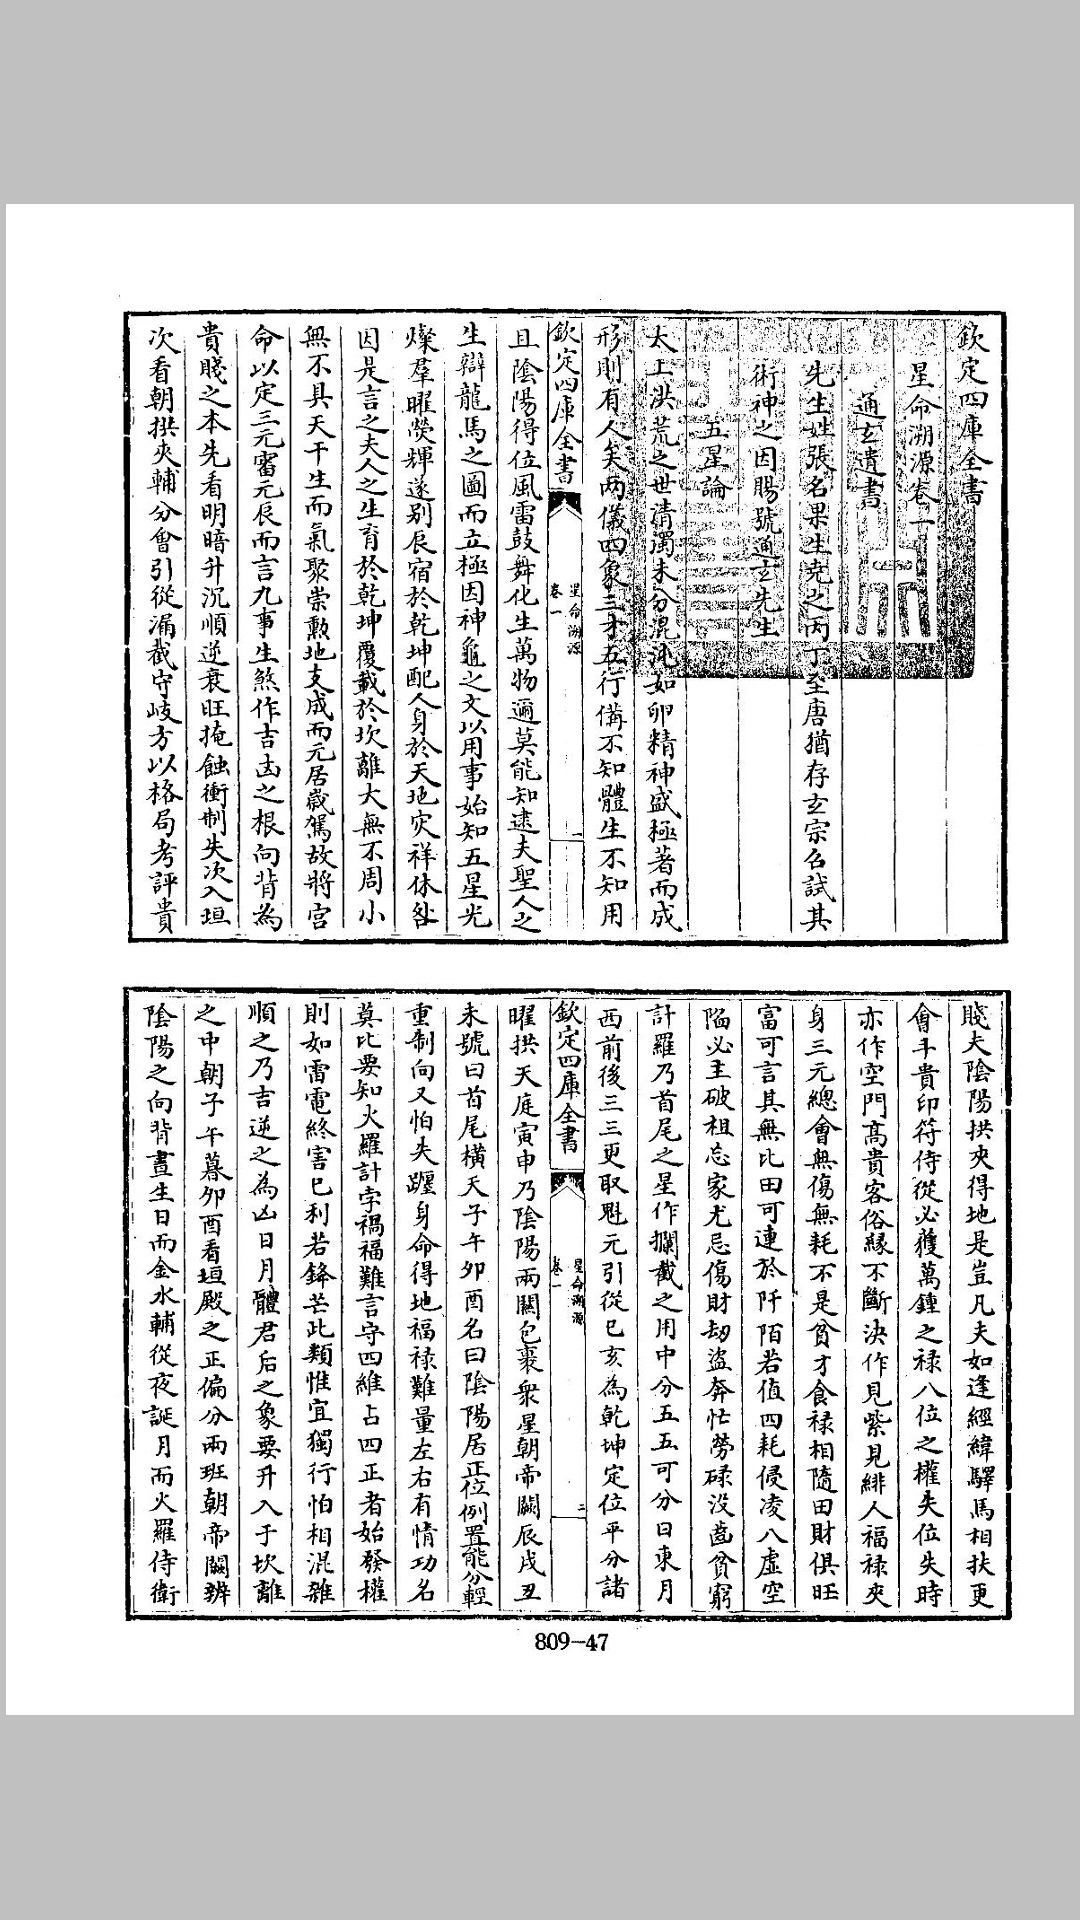 欽定四庫全書
星命溯源卷一
通玄遺書
先生姓張名果生堯之丙丁至唐猶存玄宗召試其
術神之因賜號通玄先生
五星論
太上洪荒之世清濁未分混沌如卵精神盛極著而成
形則有人矣两儀四象三才五行備不知體生不知用
欽定四庫全書
星命溯源
卷一
一
且陰陽得位風雷鼓舞化生萬物邇莫能知逮夫聖人之
生辯龍馬之圖而立極因神龜之文以用事始知五星光
燦羣曜熒輝遂别辰宿於乾坤配人身於天地灾祥休咎
因是言之夫人之生育於乾坤覆載於坎離大無不周小
無不具天干生而氣聚崇勲地支成而元居歲駕故將宫
命以定三元審元辰而言九事生煞作吉凶之根向背為
貴賤之本先看明暗升沉順逆衰旺掩蝕衝制失次入垣
次看朝拱夾輔分會引從漏截守岐方以格局考評貴
賤夫陰陽拱夾得地是豈凡夫如逢經緯驛馬相扶更
會斗貴印符侍從必獲萬鍾之禄八位之權失位失時
亦作空門髙貴客俗緣不斷決作見紫見緋人福禄夾
身三元總會無傷無耗不是貧才食禄相隨田財俱旺
富可言其無比田可連於阡陌若值四耗侵凌八虚空
陷必主破祖忘家尤忌傷財刼盜奔忙勞碌没齒貧窮
計羅乃首尾之星作攔截之用中分五五可分日東月
西前後三三更取魁元引從巳亥為乾坤定位平分諸
欽定四庫全書
星命溯源
卷一
二
曜拱天庭寅申乃陰陽兩關包裹衆星朝帝闕辰戌丑
未號曰首尾横天子午卯酉名曰陰陽居正位例置能分輕
重制向又怕失躔身命得地福禄難量左右有情功名
莫比要知火羅計孛禍福難言守四維占四正者始發權
則如雷電終害已利若鋒芒此類惟宜獨行怕相混雜
順之乃吉逆之為凶日月體君后之象要升入于坎離
之中朝子午暮夘酉看垣殿之正偏分兩班朝帝闕辨
陰陽之向背晝生日而金水輔從夜誕月而火羅侍衛
809-47